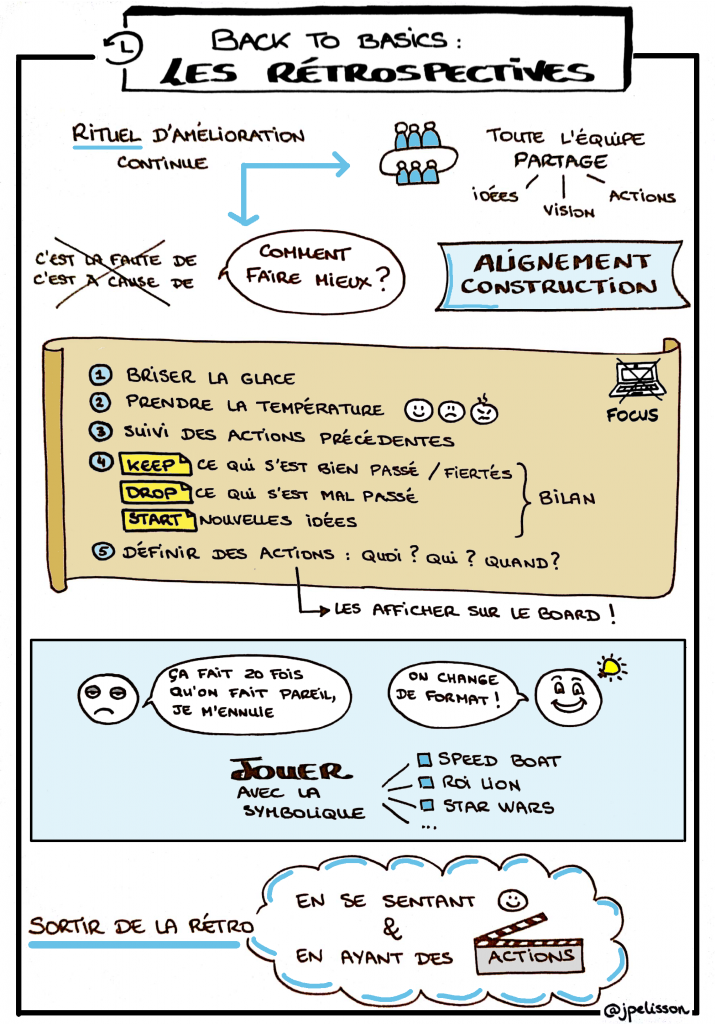 BACK TO BASICS :
LES RÉTROSPECTIVES
RITUEL D'AMÉLIORATION
CONTINUE
TOUTE L'ÉQUIPE
PARTAGE
IDÉES
VISION
ACTIONS
C'EST LA FAUTE DE
C'EST A CAUSE DE
COMMENT
FAIRE MIEUX ?
ALIGNEMENT
CONSTRUCTION
1 BRISER LA GLACE
2 PRENDRE LA TEMPÉRATURE
3 SUIVI DES ACTIONS PRÉCÉDENTES
4 KEEP CE QUI S'EST BIEN PASSÉ / FIERTÉS
DROP CE QUI S'EST MAL PASSÉ
START NOUVELLES IDÉES
BILAN
5 DÉFINIR DES ACTIONS : QUOI ? QUI ? QUAND ?
FOCUS
LES AFFICHER SUR LE BOARD !
ÇA FAIT 20 FOIS
QU'ON FAIT PAREIL,
JE M'ENNUIE
ON CHANGE
DE FORMAT !
JOUER
AVEC LA
SYMBOLIQUE
SPEED BOAT
ROI LION
STAR WARS
...
SORTIR DE LA RÉTRO
EN SE SENTANT
&
EN AYANT DES ACTIONS
@jpelisson